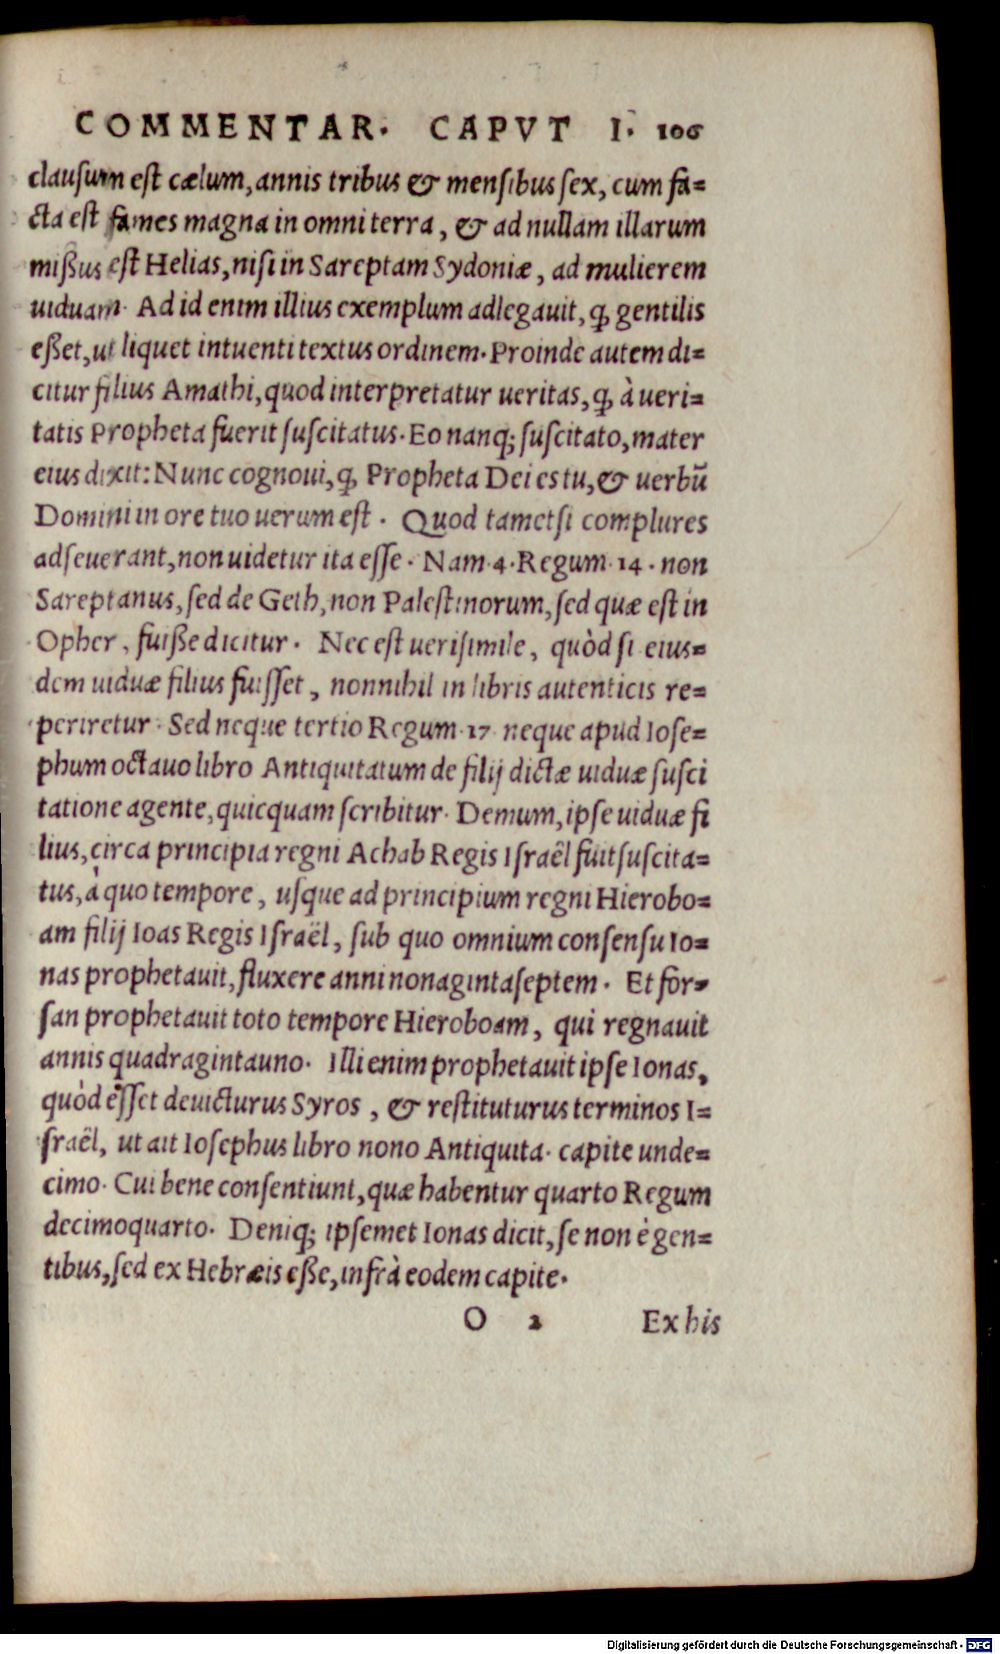 COMMENTAR. CAPVT I. 106
clausum est cælum, annis tribus & mensibus sex, cum fa=
cta est fames magna in omni terra, & ad nullam illarum
mißus est Helias, nisi in Sareptam Sydoniæ, ad mulierem
uiduam. Ad id enim illius exemplum adlegauit, ꝙ gentilis
eßet, ut liquet intuenti textus ordinem. Proinde autem di=
citur filius Amathi, quod interpretatur ueritas, ꝙ à ueri=
tatis Propheta fuerit suscitatus. Eo nanq; suscitato, mater
eius dixit: Nunc cognoui, ꝙ Propheta Dei es tu, & uerbū
Domini in ore tuo uerum est. Quod tametsi complures
adseuerant, non uidetur ita esse. Nam 4. Regum 14. non
Sareptanus, sed de Geth, non Palestinorum, sed quæ est in
Opher, fuiße dicitur. Nec est uerisimile, quòd si eius=
dem uiduæ filius fuisset, nonnihil in libris autenticis re=
periretur. Sed neque tertio Regum 17 neque apud Iose=
phum octauo libro Antiquitatum de filij dictæ uiduæ susci
tatione agente, quicquam scribitur. Demum, ipse uiduæ fi
lius, circa principia regni Achab Regis Israël fuit suscita=
tus, à quo tempore, usque ad principium regni Hierobo=
am filij Ioas Regis Israël, sub quo omnium consensu Io=
nas prophetauit, fluxere anni nonagintaseptem. Et for=
san prophetauit toto tempore Hieroboam, qui regnauit
annis quadragintauno. Illi enim prophetauit ipse Ionas,
quòd esset deuicturus Syros, & restituturus terminos I=
sraël, ut ait Iosephus libro nono Antiquita. capite unde=
cimo. Cui bene consentiunt, quæ habentur quarto Regum
decimoquarto. Deniq; ipsemet Ionas dicit, se non è gen=
tibus, sed ex Hebræis eße, infrà eodem capite.
O 2 Ex his
Digitalisierung gefördert durch die Deutsche Forschungsgemeinschaft - DFG